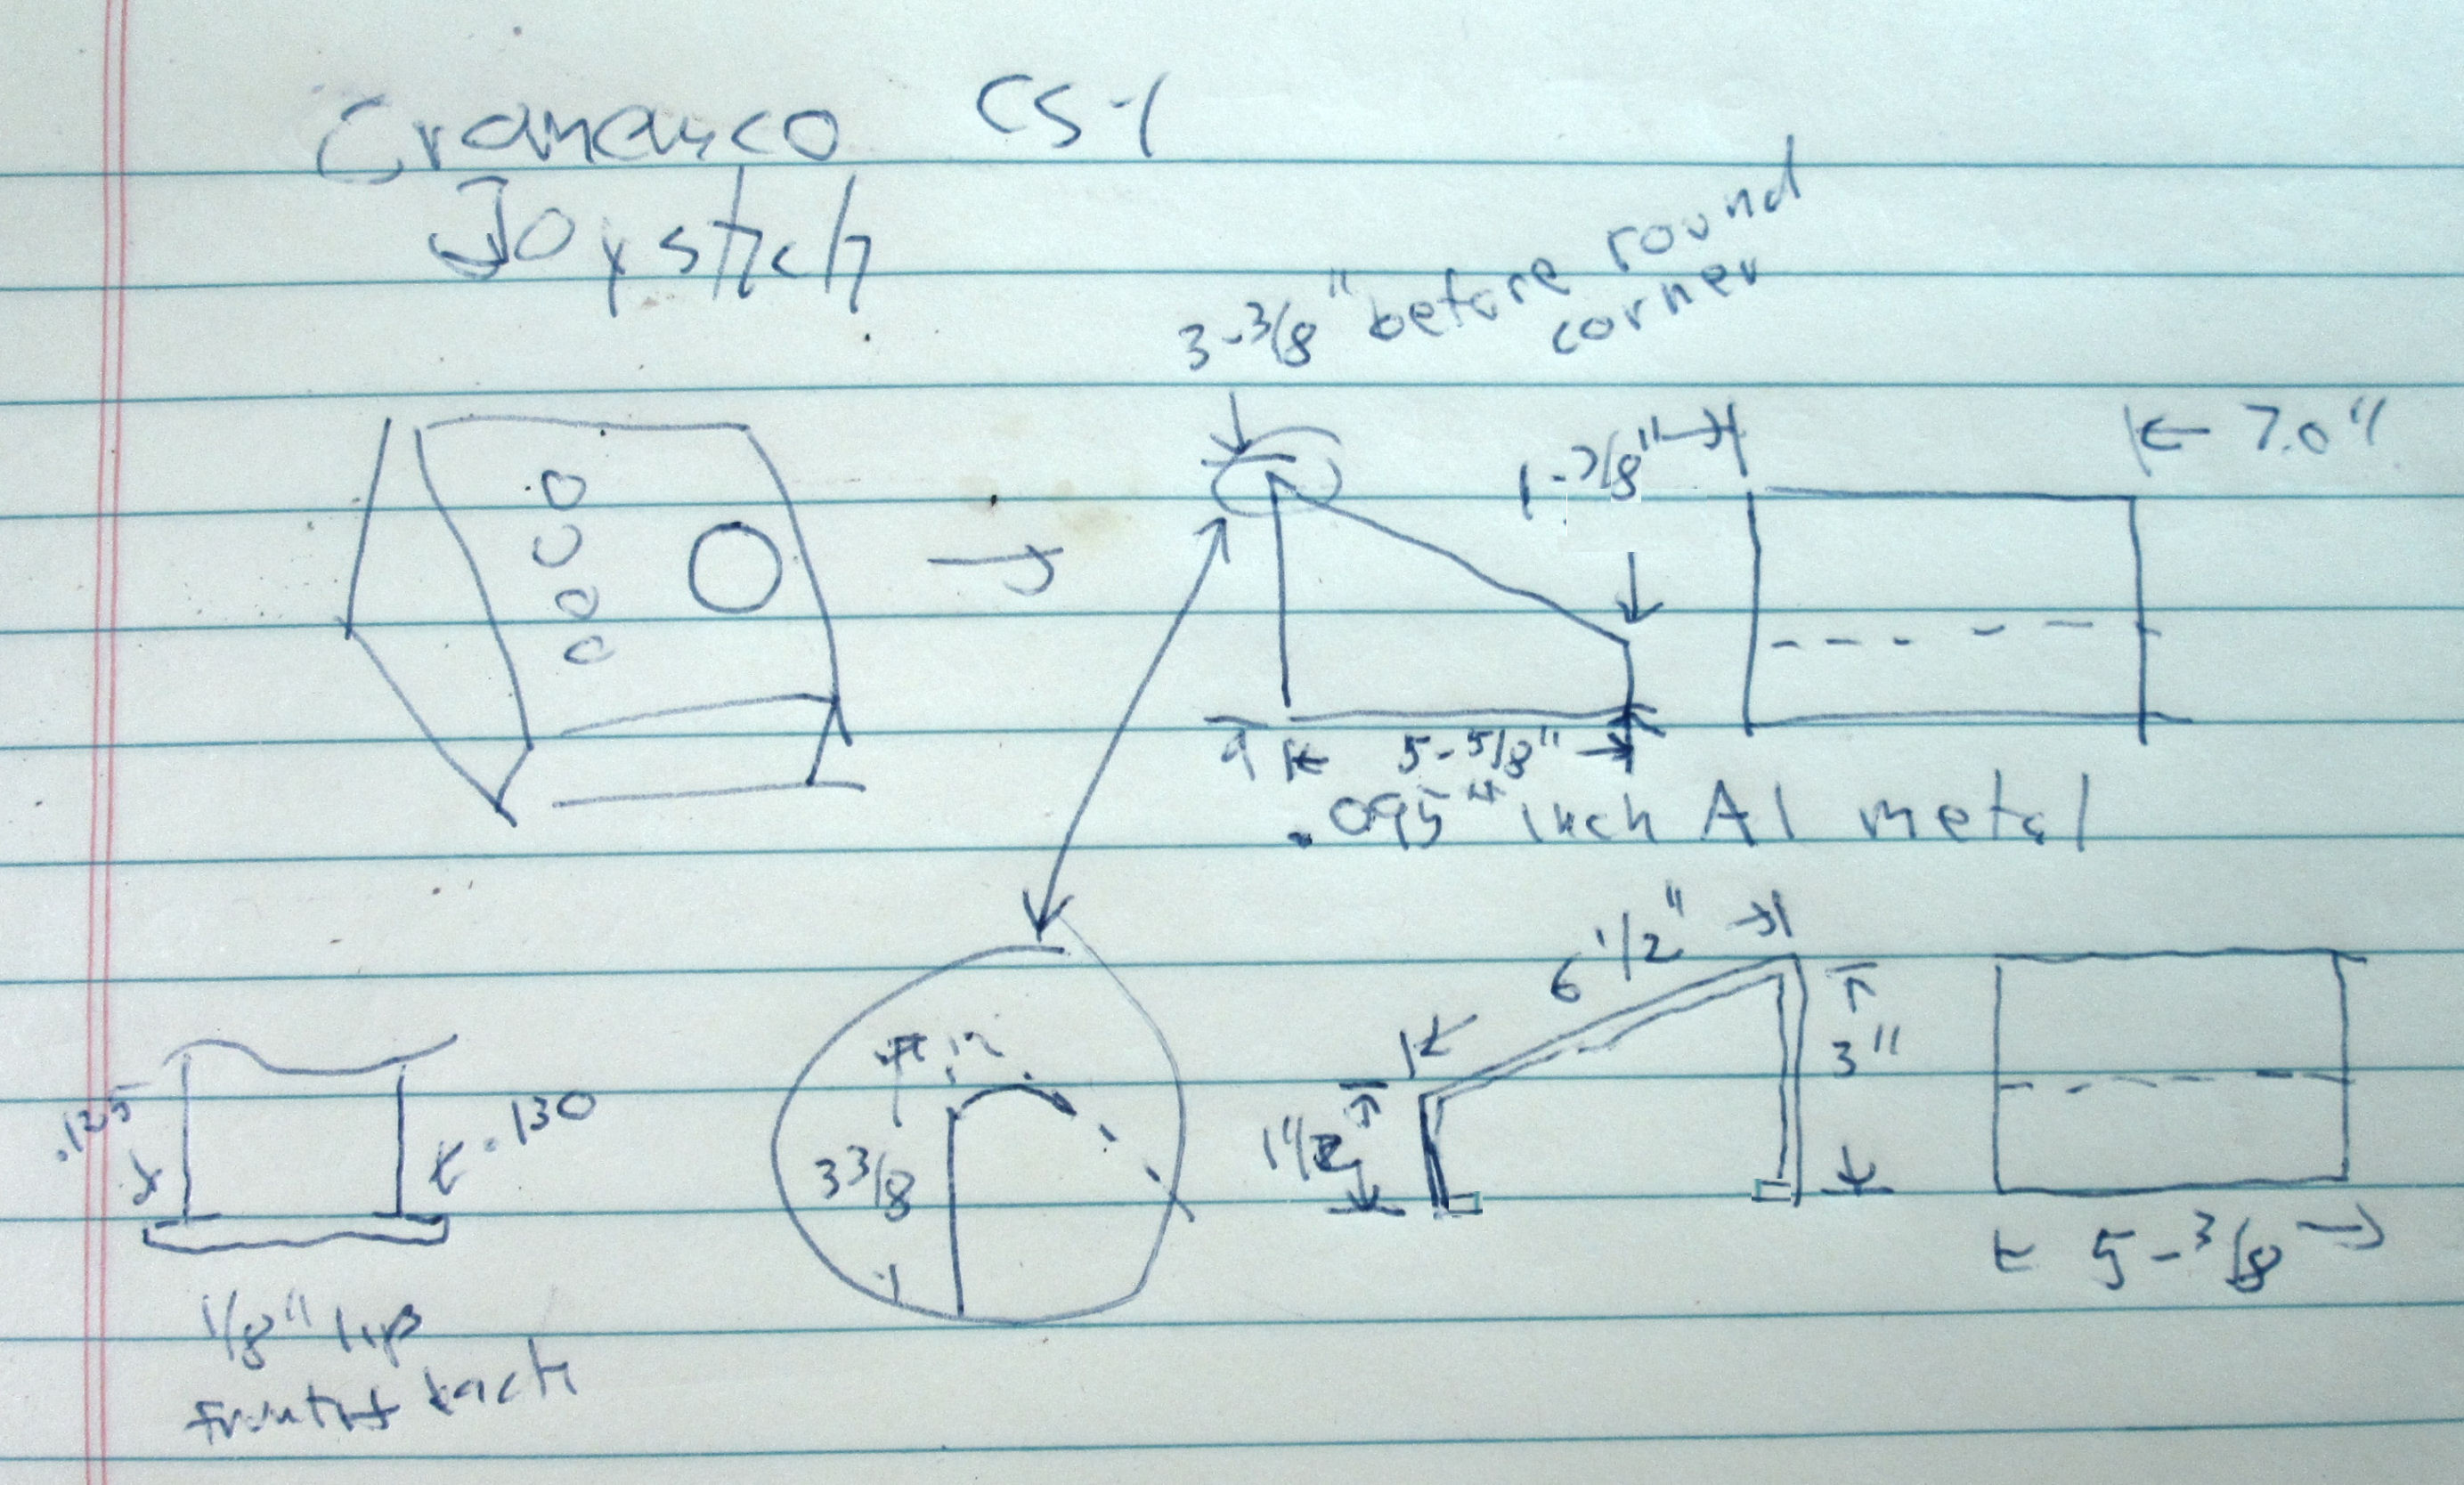 Cromemco CS-1
Joystick
3-3/8" before round
corner
1-7/8"
7.0"
5-5/8"
.095" inch Al metal
6 1/2"
3"
.125
.130
3 3/8
5-3/8
1/8" lip
front + back